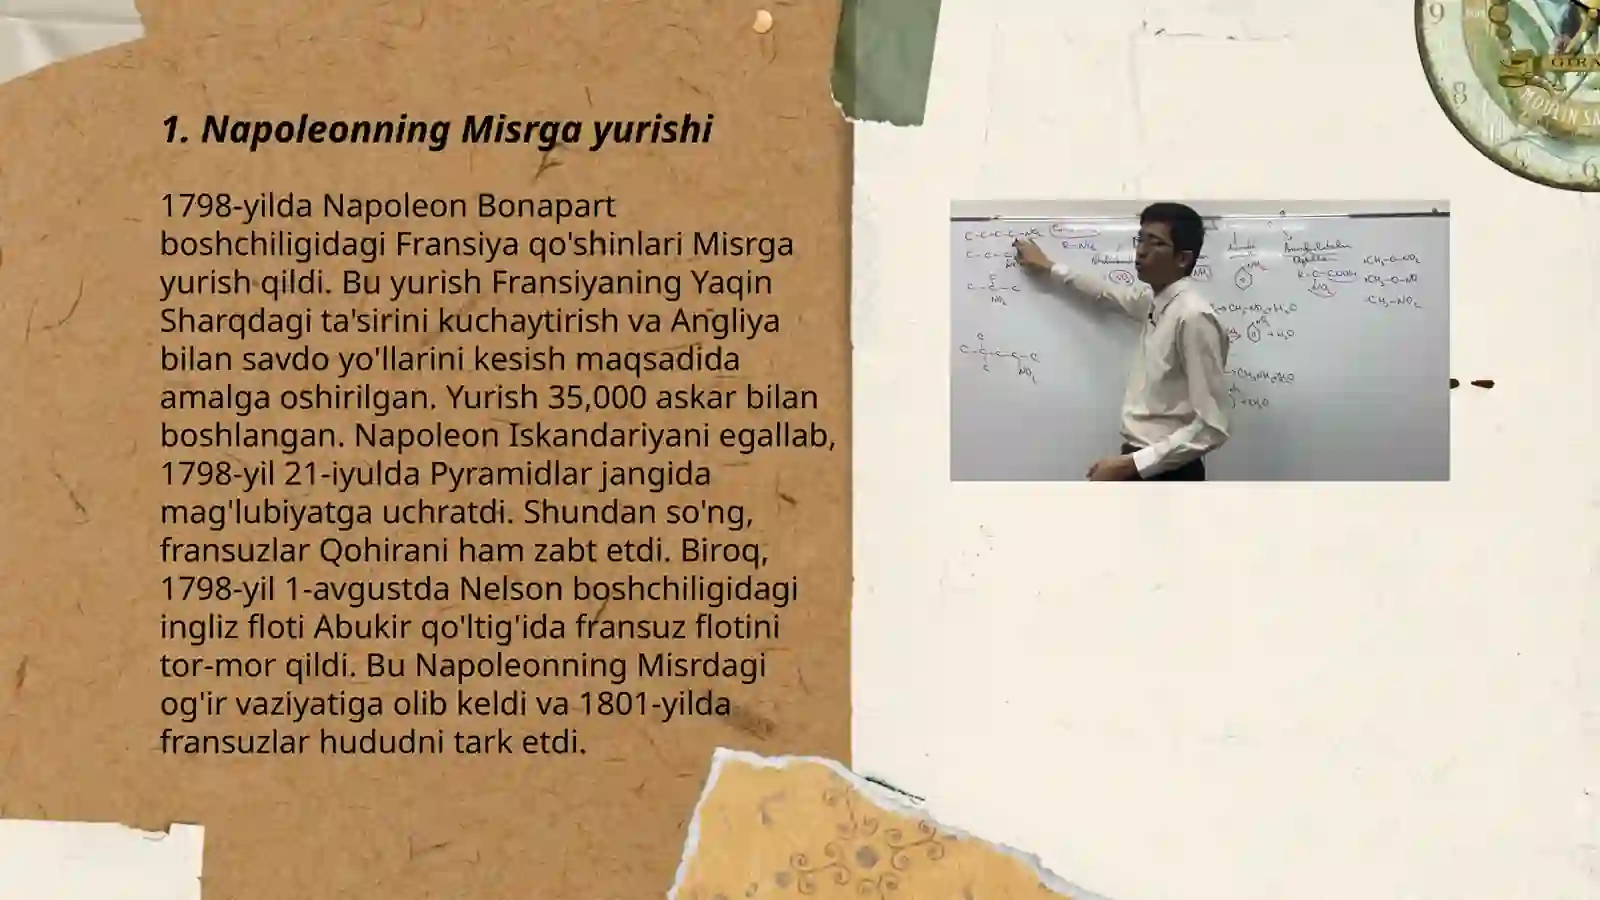 1. Napoleonning Misrga yurishi
1798-yilda Napoleon Bonapart
boshchiligidagi Fransiya qo'shinlari Misrga
yurish qildi. Bu yurish Fransiyaning Yaqin
Sharqdagi ta'sirini kuchaytirish va Angliya
bilan savdo yo'llarini kesish maqsadida
amalga oshirilgan. Yurish 35,000 askar bilan
boshlangan. Napoleon Iskandariyani egallab,
1798-yil 21-iyulda Pyramidlar jangida
mag'lubiyatga uchratdi. Shundan so'ng,
fransuzlar Qohirani ham zabt etdi. Biroq,
1798-yil 1-avgustda Nelson boshchiligidagi
ingliz floti Abukir qo'ltig'ida fransuz flotini
tor-mor qildi. Bu Napoleonning Misrdagi
og'ir vaziyatiga olib keldi va 1801-yilda
fransuzlar hududni tark etdi.
9
8
6
MOULIN
CH₃-O-NO₂
CH₃-O-NO
CH₃-NO₂
R-NO₂